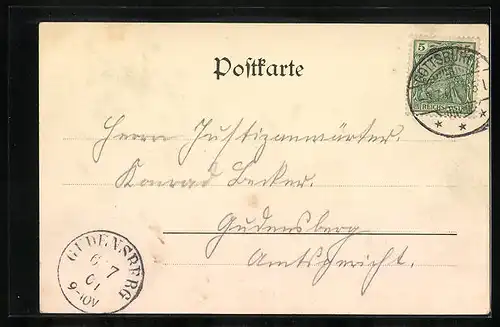 Postkarte
5 5
REICHSPOST
Herrn Justizanwärter
Konrad Becker.
Gudensberg
Amtsgericht.
GUDENSBERG
6 7
01
9-10V